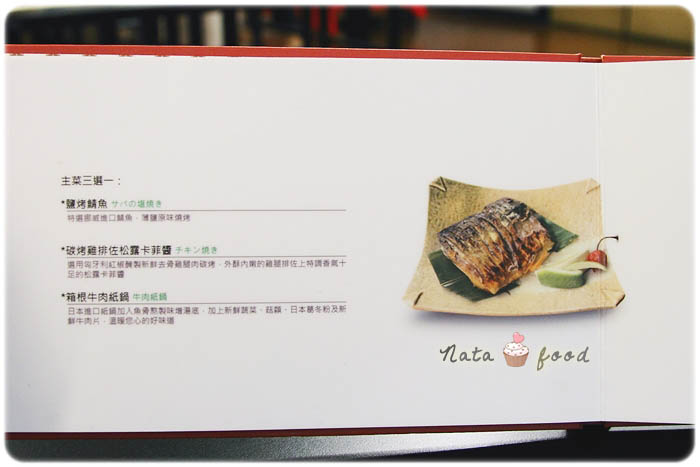 主菜三選一：
*鹽烤鯖魚 サバの塩焼き
特選挪威進口鯖魚，薄鹽原味燒烤
*碳烤雞排佐松露卡菲醬 チキン焼き
選用匈牙利紅椒醃製新鮮去骨雞腿肉碳烤，外酥內嫩的雞腿排佐上特調香氣十
足的松露卡菲醬
*箱根牛肉紙鍋 牛肉紙鍋
日本進口紙鍋加入魚骨熬製味增湯底，加上新鮮蔬菜、菇類、日本葛冬粉及新
鮮牛肉片，溫暖您心的好味道
Nata food